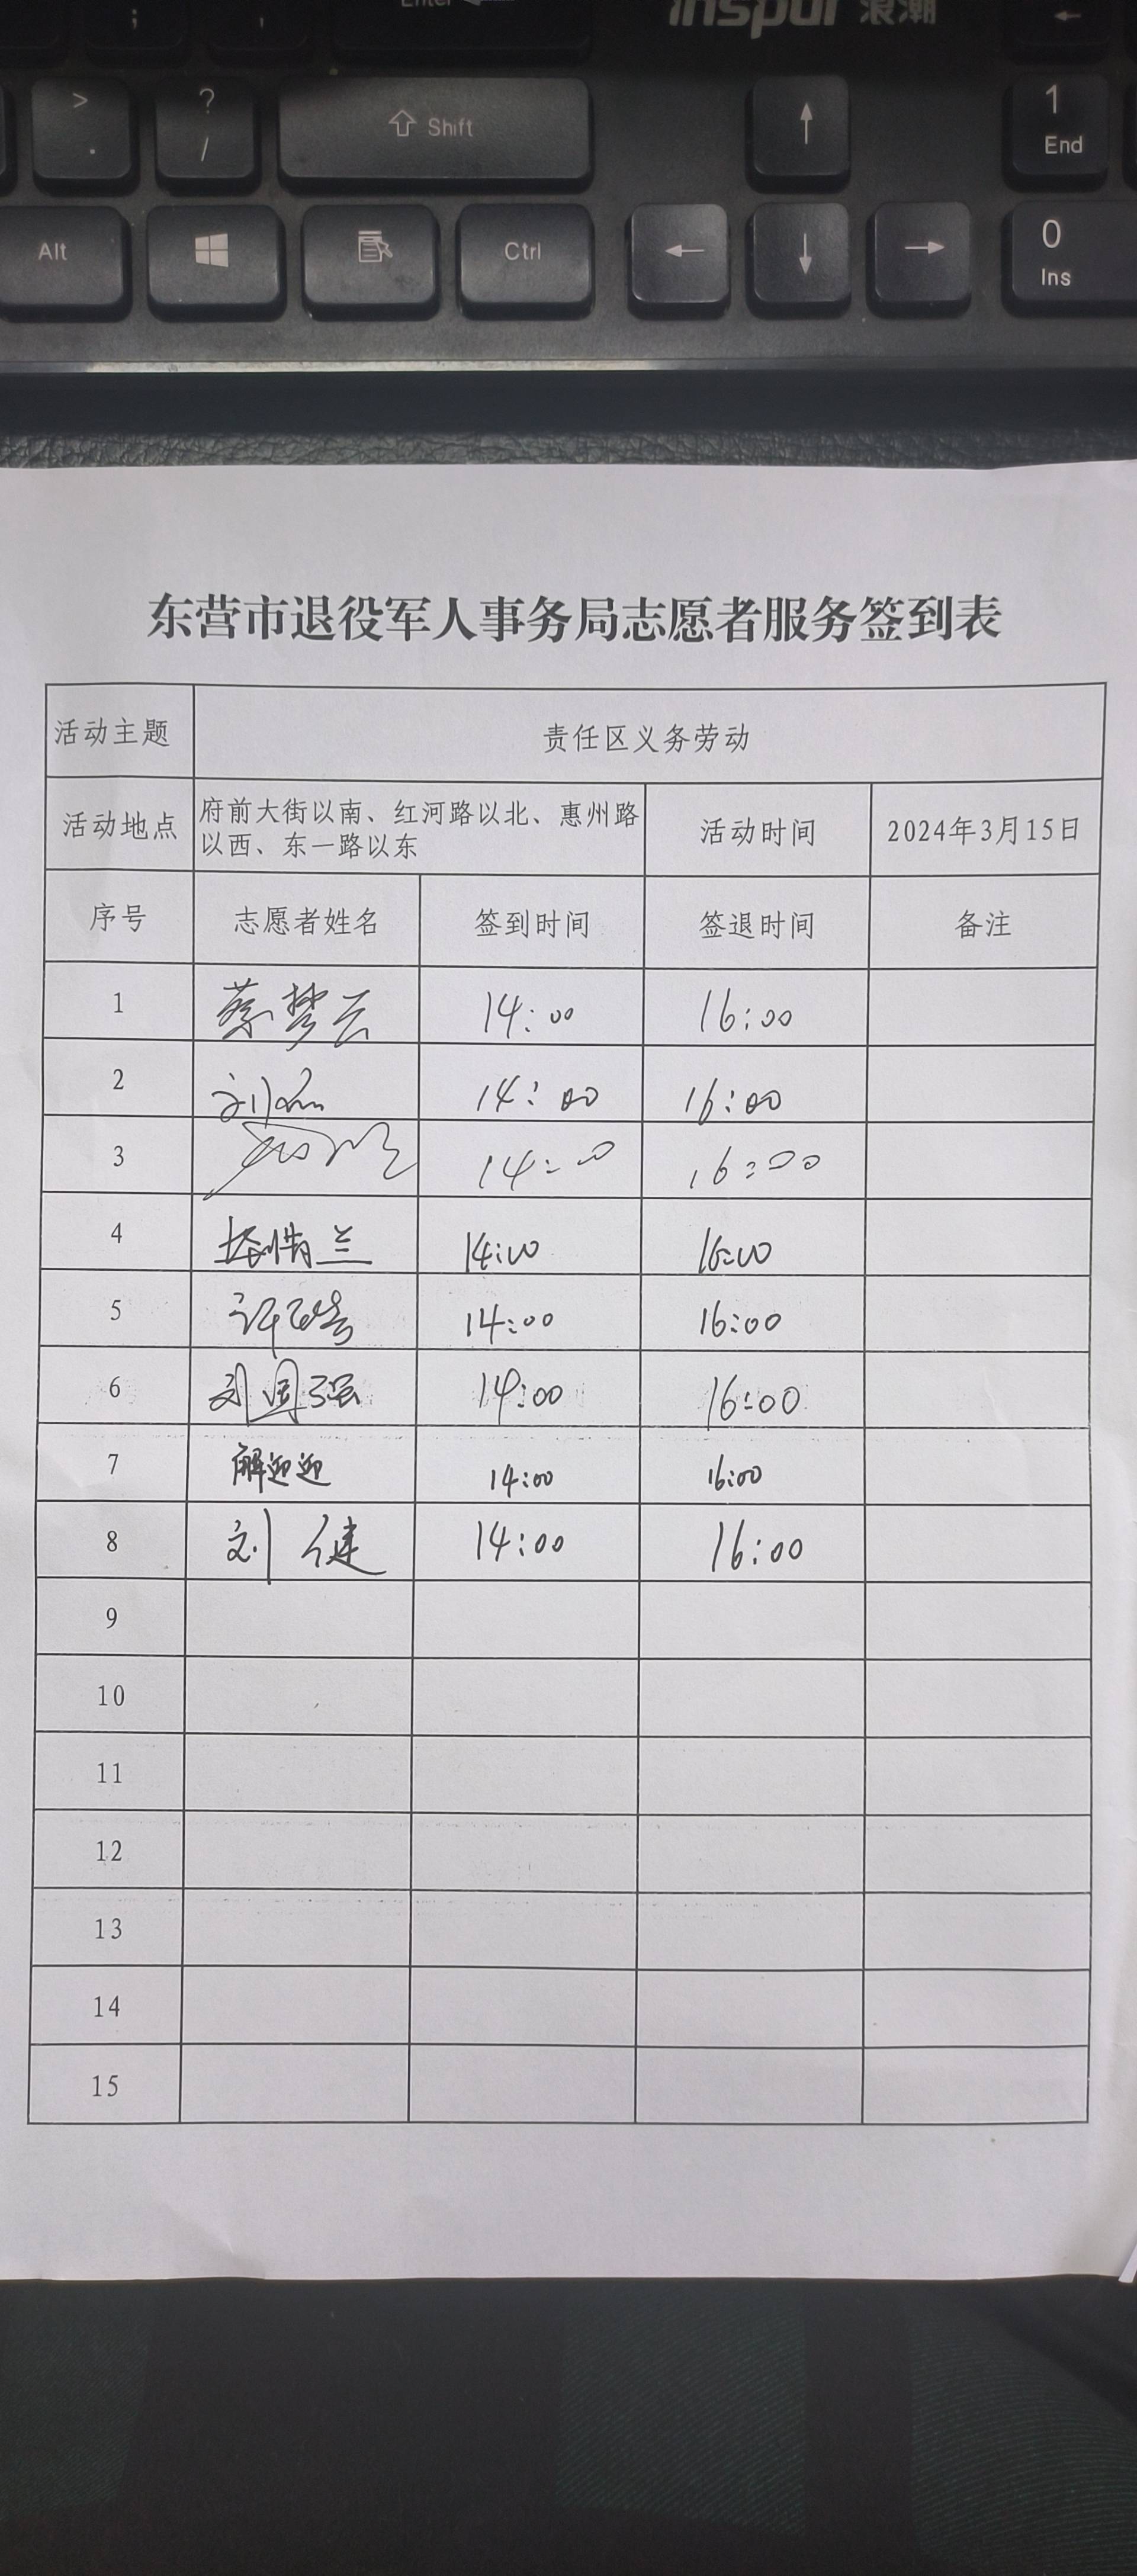 Enter
inspur 浪潮
;
,
←
>
.
?
/
⇧ Shift
↑
1
End
Alt
Ctrl
←
↓
→
0
Ins
东营市退役军人事务局志愿者服务签到表
活动主题 责任区义务劳动
活动地点 府前大街以南、红河路以北、惠州路
以西、东一路以东 活动时间 2024年3月15日
序号 志愿者姓名 签到时间 签退时间 备注
1 蔡梦云 14:00 16:00
2 刘 14:00 16:00
3 14:00 16:00
4 兰 14:00 16:00
5 许 14:00 16:00
6 刘国强 14:00 16:00
7 解迎迎 14:00 16:00
8 刘健 14:00 16:00
9
10
11
12
13
14
15